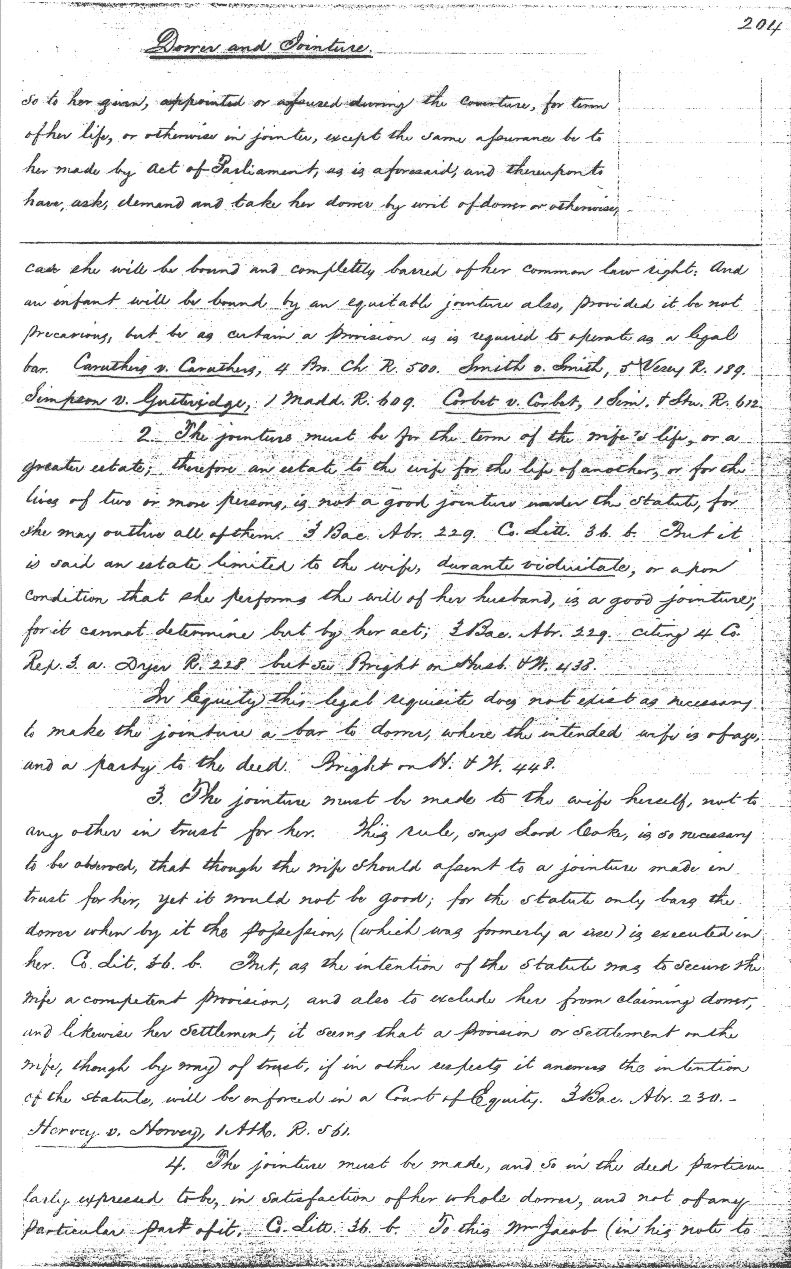 204
Dower and Jointure.
so to her given, appointed or assured during the coverture, for term
of her life, or otherwise in jointer, except the same assurance be to
her made by act of Parliament, as is aforesaid, and thereupon to
have, ask, demand and take her dower by writ of dower or otherwise,
case she will be bound and completely barred of her common law right: And
an infant will be bound by an equitable jointure also, provided it be not
precarious, but be as certain a provision as is required to operate as a legal
bar. Caruthers v. Caruthers, 4 Bro. Ch. R. 500. Smith v. Smith, 5 Vesey R. 189.
Simpson v. Gutteridge, 1 Madd. R. 609. Corbet v. Corbet, 1 Sim. & Stu. R. 612
2. The jointure must be for the term of the wife's life, or a
greater estate; therefore an estate to the wife for the life of another, or for the
lives of two or more persons, is not a good jointure under the statute, for
she may outlive all of them. 3 Bac. Abr. 229. Co. Litt. 36. b. But it
is said an estate limited to the wife, durante viduitate, or upon
condition that she performs the will of her husband, is a good jointure;
for it cannot determine but by her act; 3 Bac. Abr. 229. citing 4 Co.
Rep. 3. a. Dyer R. 228. but see Bright on Husb. & W. 438.
In Equity this legal requisite does not exist as necessary
to make the jointure a bar to dower, where the intended wife is of age,
and a party to the deed. Bright on H. & W. 448.
3. The jointure must be made to the wife herself, not to
any other in trust for her. This rule, says Lord Coke, is so necessary
to be observed, that though the wife should assent to a jointure made in
trust for her, yet it would not be good; for the statute only bars the
dower when by it the possession, (which was formerly a use) is executed in
her. Co. Lit. 36. b. But, as the intention of the statute was to secure the
wife a competent provision, and also to exclude her from claiming dower,
and likewise her settlement, it seems that a provision or settlement on the
wife, though by way of trust, if in other respects it answers the intention
of the statute, will be enforced in a Court of Equity. 3 Bac. Abr. 230. -
Hervey v. Hervey, 1 Atk. R. 561.
4. The jointure must be made, and so in the deed particu
larly expressed to be, in satisfaction of her whole dower, and not of any
particular part of it. Co. Litt. 36. b. To this Mr Jacob (in his note to